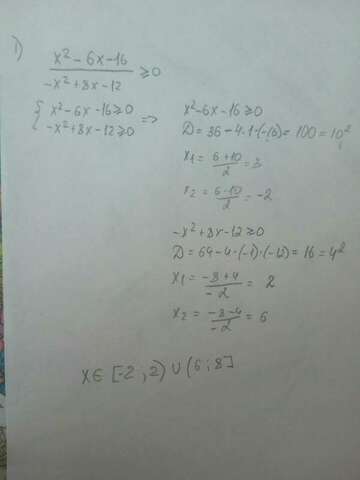 1)
x² - 6x - 16
/ -x² + 8x - 12 ≥ 0
{ x² - 6x - 16 ≥ 0
-x² + 8x - 12 ≥ 0 =>
x² - 6x - 16 ≥ 0
D = 36 - 4·1·(-16) = 100 = 10²
x₁ = (6+10)/2 = 3
x₂ = (6-10)/2 = -2
-x² + 8x - 12 ≥ 0
D = 64 - 4·(-1)·(-12) = 16 = 4²
x₁ = (-8+4)/-2 = 2
x₂ = (-8-4)/-2 = 6
x ∈ [-2; 2) ∪ (6; 8]